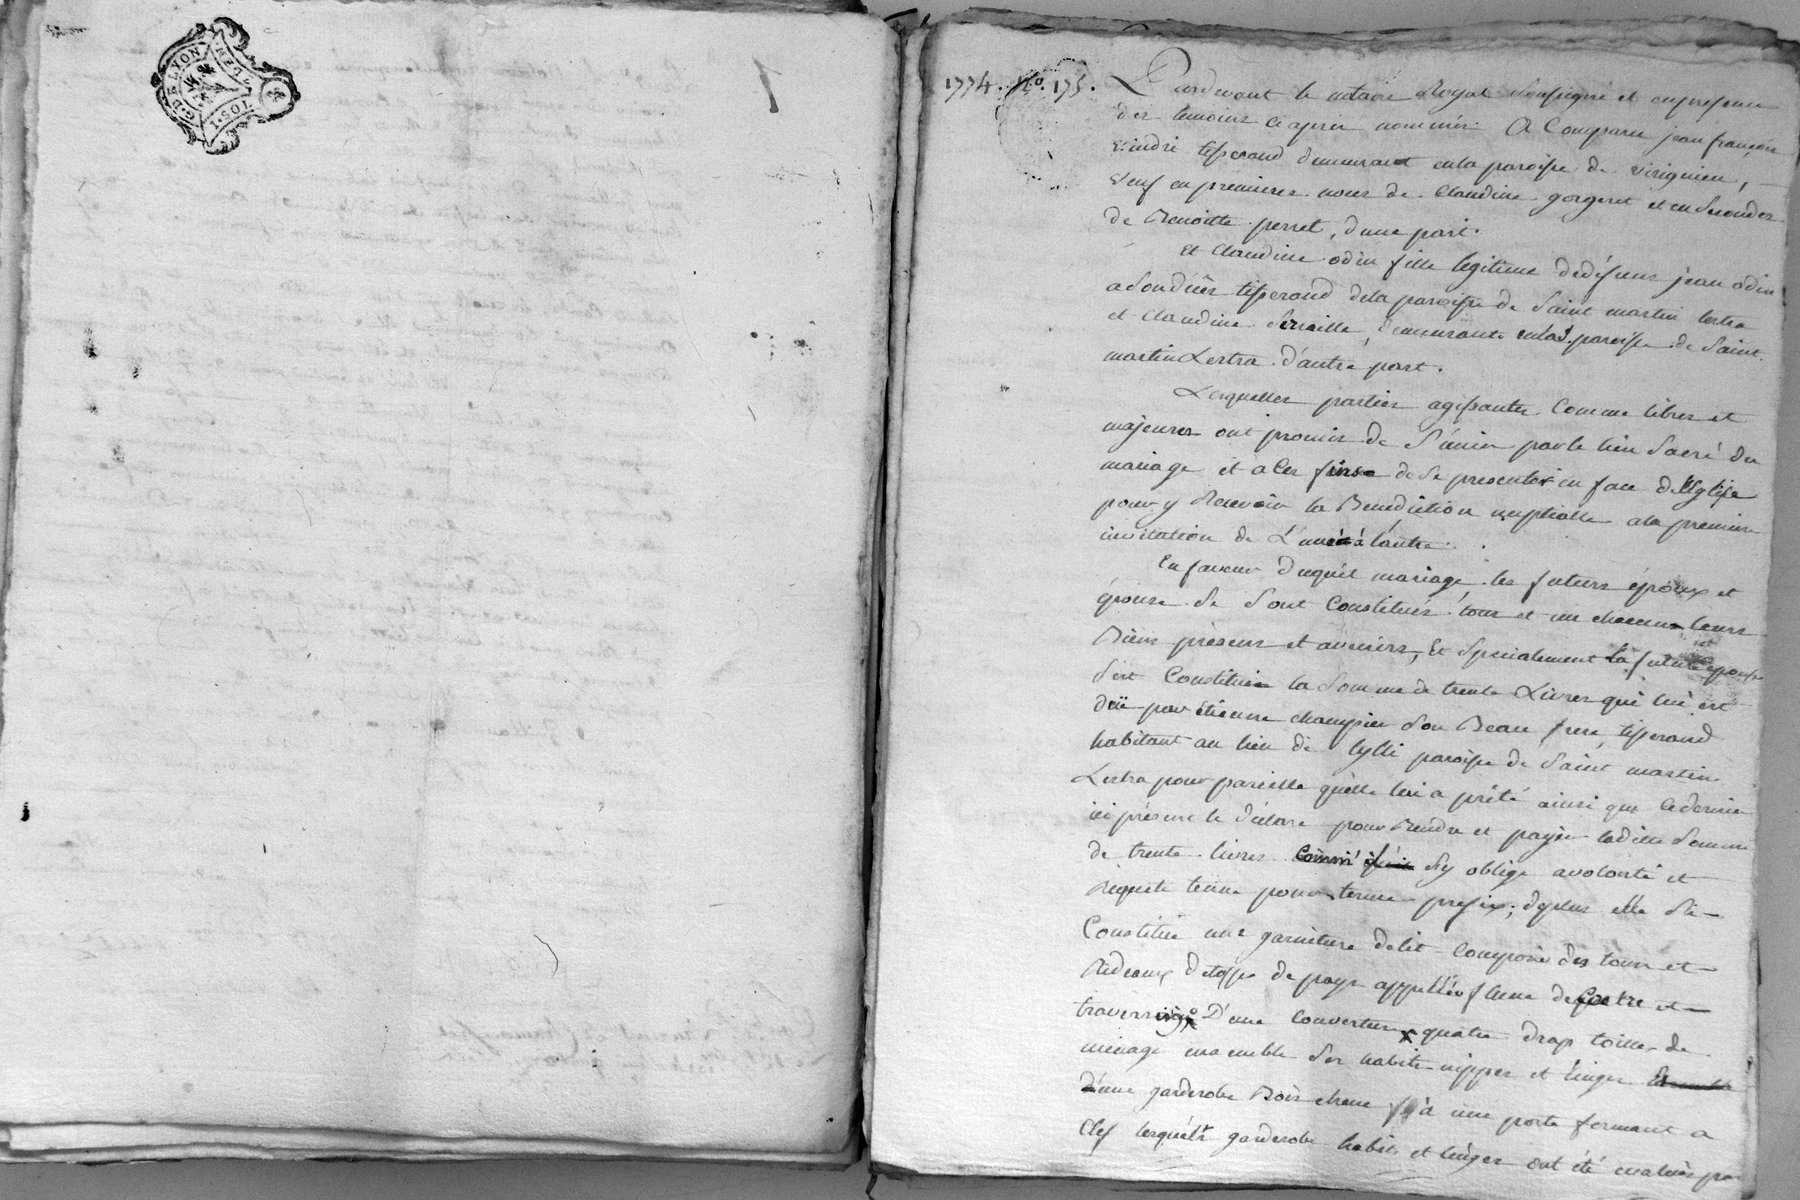 G. DE LYON
1 SOL
1
1774. No. 175.
Pardevant le notaire Royal soussigné et en presence
des temoins ciaprès nommés. A Comparu jean françois
tisserand demeurant en la paroisse de virignieu,
veuf en premieres noces de Claudine gorgeret et en secondes
de Benoitte perret, d'une part.
Et Claudine odin fille legitime de défunt jean odin
tisserand de la paroisse de Saint martin lestra
et Claudine demeurante en la paroisse de Saint
martin Lestra d'autre part.
Lesquelles parties agissantes Comme libres et
majeures ont promis de S'unir par le lien Sacré du
mariage et a ces fins de se presenter en face de l'Eglise
pour y Recevoir la Benediction nuptialle a la premiere
invitation de L'un à l'autre.
En faveur duquel mariage les futurs époux et
épouse se sont Constitués tous et un chacuns leurs
Biens présens et avenirs, Et Specialement la future épouse
s'est Constituée la Somme de trente Livres qui lui est
düe par Etienne champier son Beau frere, tisserand
habitant au lieu de paroisse de Saint martin
Lestra pour pareille qu'elle lui a prété ainsi que ce dernier
ici présent le déclare pour Rendre et payer laditte Somme
de trente livres s'y oblige a volonté et
Requete tenue pour terme prefix; de plus elle s'est
Constitué une garniture de lit Composé des tours et
Rideaux d'etoffe de pays appellée
D'une couverture quatre drap toille de
ménage ensemble ses habits nippes et linges
D'une garderobe Bois chene à une porte fermant a
Clef lesquels garderobe habits et linges ont été évalués par